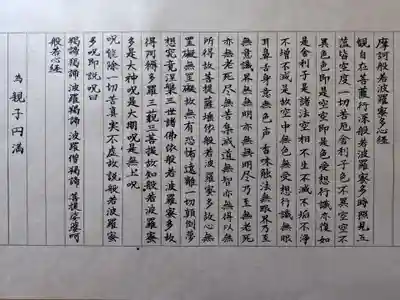 摩訶般若波羅蜜多心経
観自在菩薩行深般若波羅蜜多時照見五
蘊皆空度一切苦厄舎利子色不異空空不
異色色即是空空即是色受想行識亦復如
是舎利子是諸法空相不生不滅不垢不浄
不増不減是故空中無色無受想行識無眼
耳鼻舌身意無色声香味触法無眼界乃至
無意識界無無明亦無無明尽乃至無老死
亦無老死尽無苦集滅道無智亦無得以無
所得故菩提薩埵依般若波羅蜜多故心無
罣礙無罣礙故無有恐怖遠離一切顛倒夢
想究竟涅槃三世諸佛依般若波羅蜜多故
得阿耨多羅三藐三菩提故知般若波羅蜜
多是大神呪是大明呪是無上呪是無等等
呪能除一切苦真実不虚故説般若波羅蜜
多呪即説呪曰
羯諦羯諦波羅羯諦波羅僧羯諦菩提娑婆訶
般若心経
為親子円満